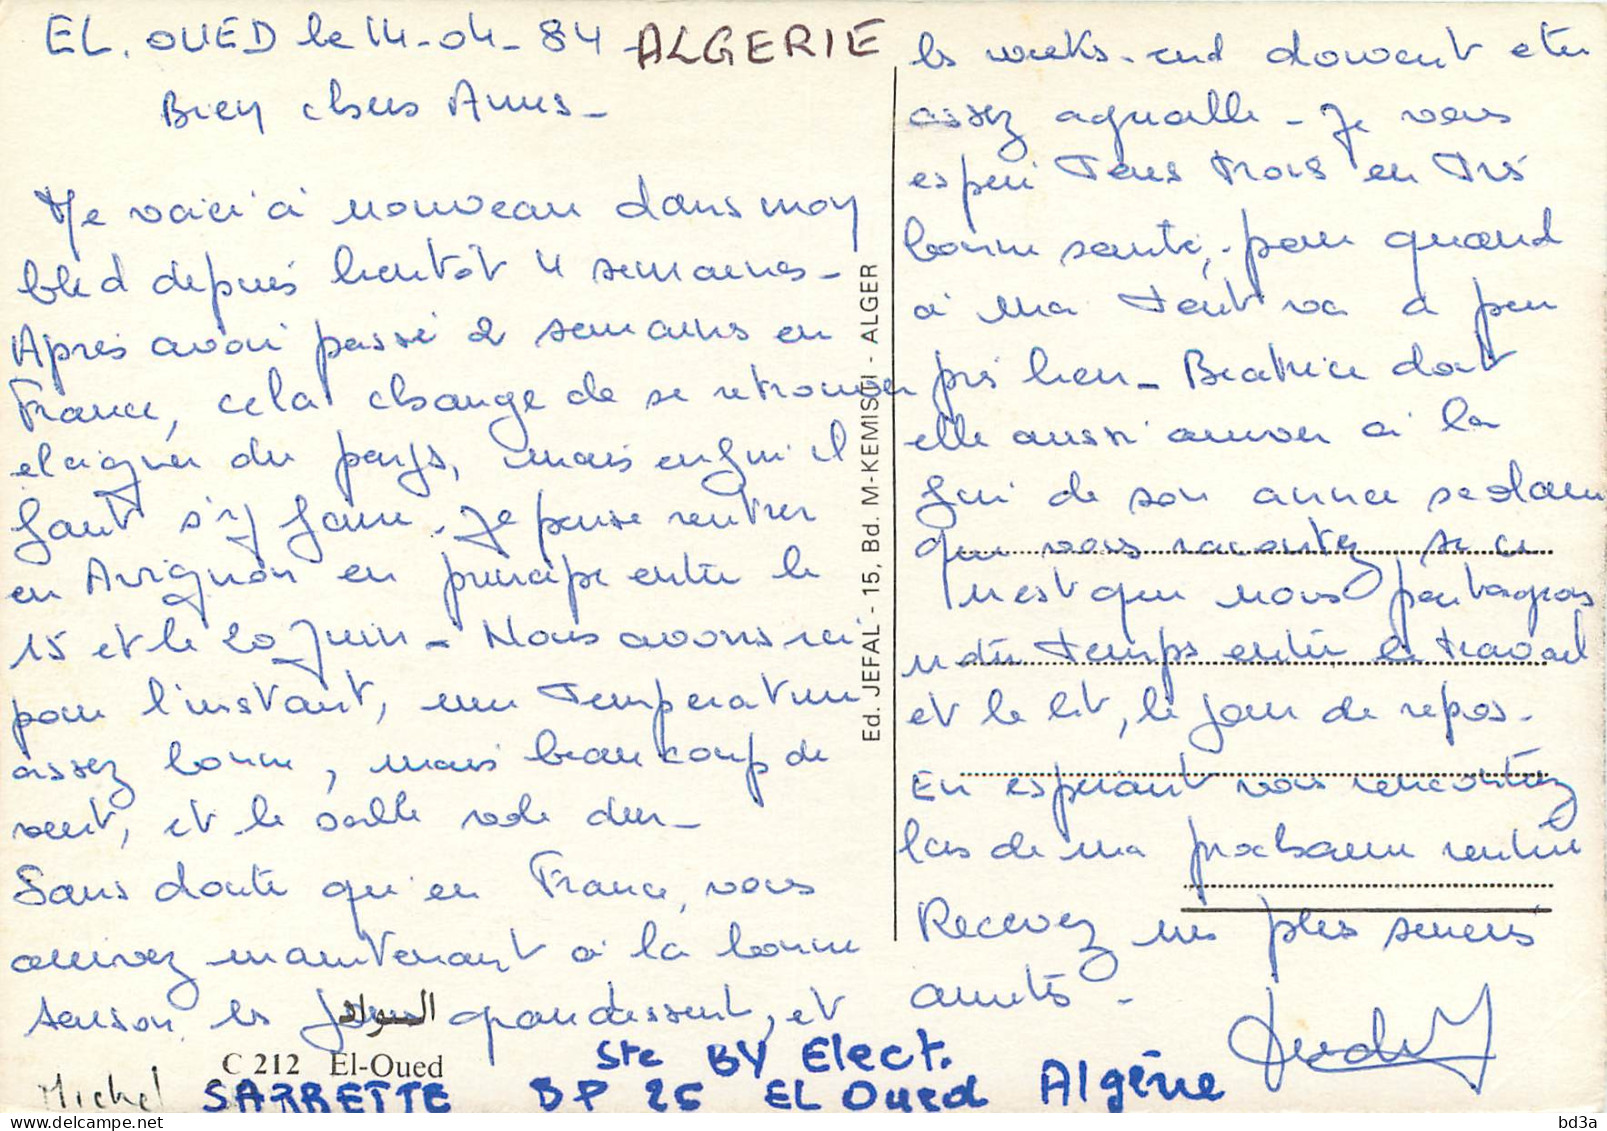 EL. OUED le 14-04-84 - ALGERIE
Bien chers Amis -
Me voici à nouveau dans mon
bled depuis bientôt 4 semaines -
Après avoir passé 2 semaines en
France, cela change de se retrouver
éloigner du pays, mais enfin il
faut s'y faire. Je pense rentrer
en Avignon en principe entre le
15 et le 20 Juin - Nous avons ici
pour l'instant, une température
assez bonne, mais beaucoup de
vent, et le sable vole dur -
Sans doute qu'en France, vous
arrivez maintenant à la bonne
saison, les jours grandissent, et
les weeks-end doivent etre
assez agréable - Je vous
espère tous trois en très
bonne santé, - pour quand
à ma tout va à peu
près bien - Béatrice doit
elle aussi arriver à la
fin de son année scolaire
que vous racontez, se ce
n'est que nous partageons
notre temps entre le travail
et le lit, le jour de repos.
En espérant vous rencontrez
lors de ma prochaine rentrée
Recevez mes plus sincères
amitiés -
السواد
C 212 El-Oued
Ed. JEFAL - 15, Bd. M-KEMISTI - ALGER
Ste BY Elect.
Michel SARRETTE BP 25 EL Oued Algérie
bd3a